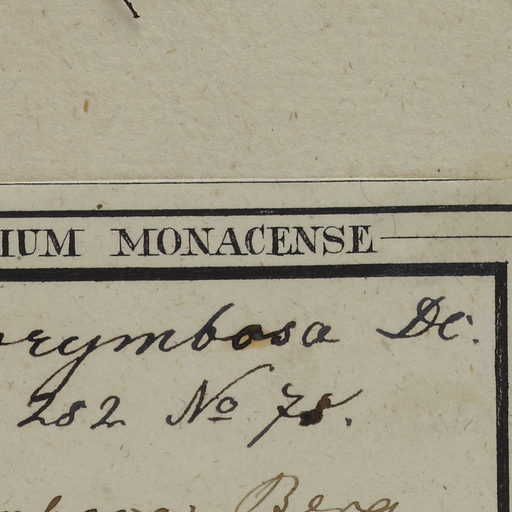 IUM MONACENSE
orymbosa DC.
282 No 78.
Berg